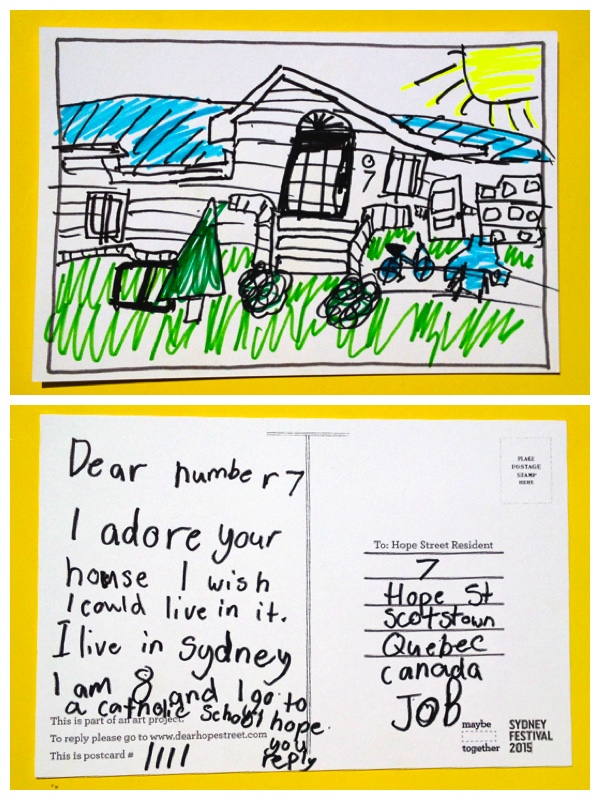 7
Dear number 7
I adore your
house I wish
I could live in it.
I live in Sydney
I am 8 and I go to
a catholic School I hope
you
reply
This is part of an art project.
To reply please go to www.dearhopestreet.com
This is postcard # 1111
PLACE
POSTAGE
STAMP
HERE
To: Hope Street Resident
7
Hope St
Scotstown
Quebec
Canada
JOB
maybe
together
SYDNEY
FESTIVAL
2015